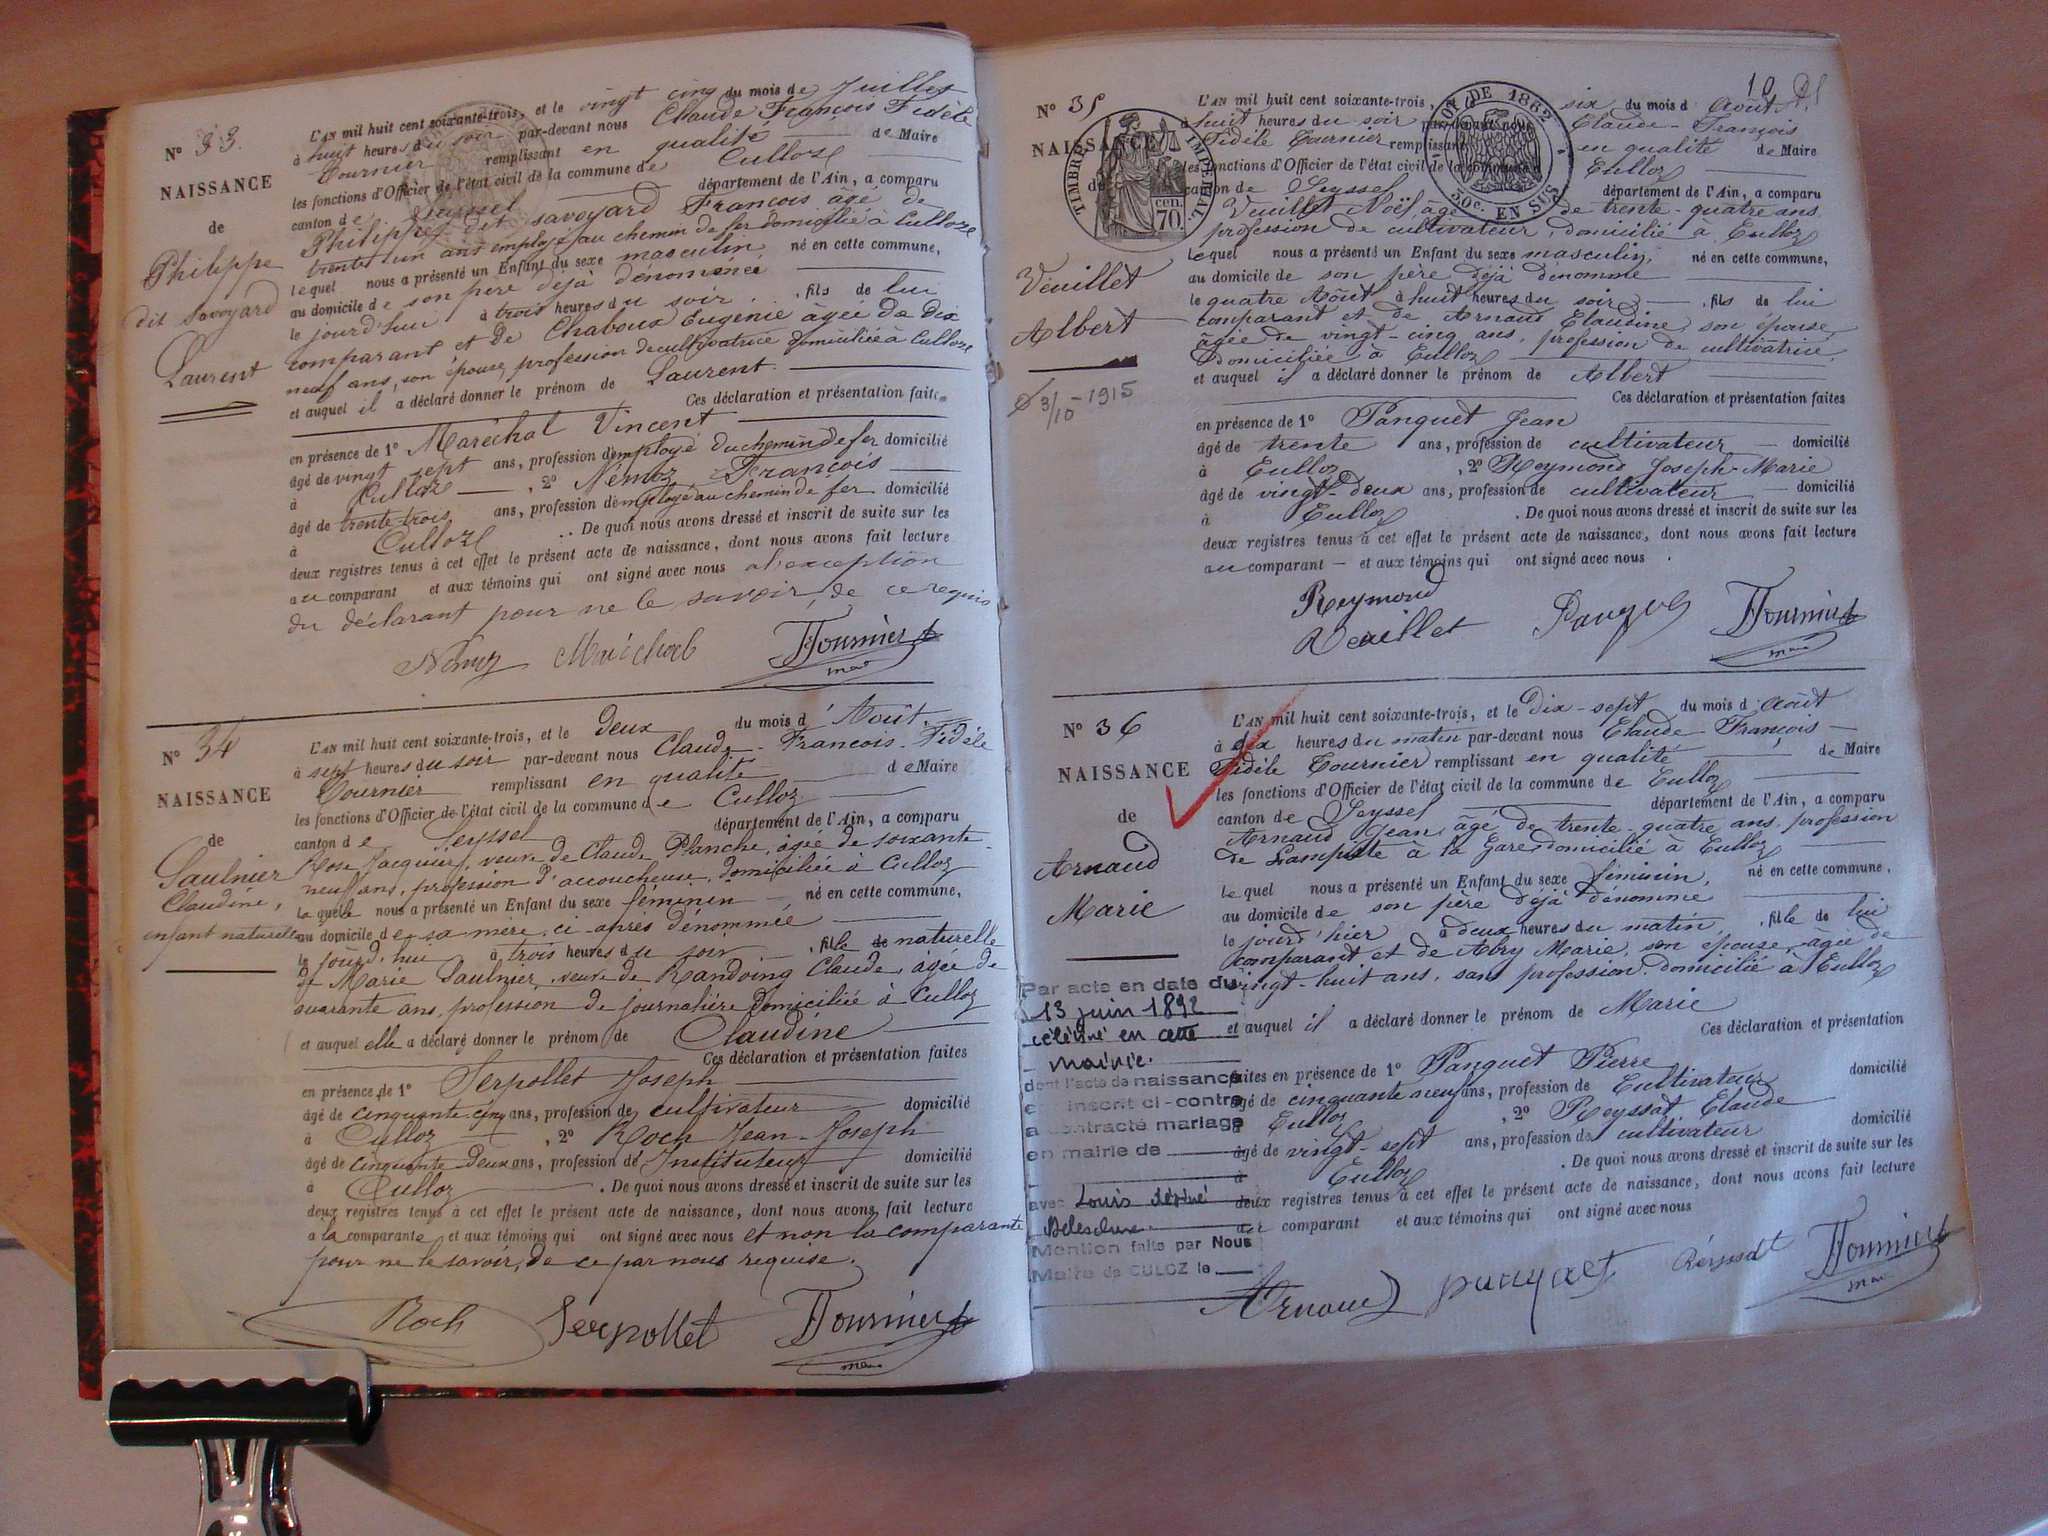 N° 33.
NAISSANCE
de
Philippe
dit savoyard
Laurent
L'AN mil huit cent soixante-trois, et le vingt cinq du mois de Juillet
à huit heures du soir par-devant nous Claude François Fidèle
Tournier remplissant en qualité de Maire
les fonctions d'Officier de l'état civil de la commune de Culloz
canton de Seyssel département de l'Ain, a comparu
Philippe dit savoyard François âgé de
trente un ans employé au chemin de fer domicilié à Culloz
lequel nous a présenté un Enfant du sexe masculin né en cette commune,
au domicile de son père déjà dénommé
le jourd'hui à trois heures du soir, fils de lui
comparant et de Chaboux Eugénie âgée de dix
neuf ans, son épouse, profession de cultivatrice domiciliée à Culloz
et auquel il a déclaré donner le prénom de Laurent.
Ces déclaration et présentation faites
en présence de 1° Maréchal Vincent
âgé de vingt sept ans, profession d'employé du chemin de fer domicilié
à Culloz, 2° Némoz François
âgé de trente trois ans, profession d'employé au chemin de fer domicilié
à Culloz. De quoi nous avons dressé et inscrit de suite sur les
deux registres tenus à cet effet le présent acte de naissance, dont nous avons fait lecture
au comparant et aux témoins qui ont signé avec nous a l'exception
du déclarant pour ne le savoir, de ce requis
Némoz Maréchal Tournier
maire
N° 34
NAISSANCE
de
Saulnier
Claudine,
enfant naturelle
L'AN mil huit cent soixante-trois, et le deux du mois d'Août.
à sept heures du soir par-devant nous Claude-François-Fidèle
Tournier remplissant en qualité de Maire
les fonctions d'Officier de l'état civil de la commune de Culloz
canton de Seyssel département de l'Ain, a comparu
Rose Jacquier, veuve de Claude Planche, âgée de soixante-
neuf ans, profession d'accoucheuse, domiciliée à Culloz
laquelle nous a présenté un Enfant du sexe féminin né en cette commune,
au domicile de sa mère, ci-après dénommée
le jourd'hui à trois heures du soir, fille de naturelle
de Marie Saulnier, veuve de Randoing Claude, âgée de
quarante ans, profession de journalière domiciliée à Culloz
et auquel elle a déclaré donner le prénom de Claudine
Ces déclaration et présentation faites
en présence de 1° Serpollet Joseph
âgé de cinquante cinq ans, profession de cultivateur domicilié
à Culloz, 2° Roch Jean-Joseph
âgé de cinquante deux ans, profession de Instituteur domicilié
à Culloz. De quoi nous avons dressé et inscrit de suite sur les
deux registres tenus à cet effet le présent acte de naissance, dont nous avons fait lecture
a la comparante et aux témoins qui ont signé avec nous et non la comparante
pour ne le savoir, de ce par nous requise.
Roch Serpollet Tournier
maire
10
N° 35
NAISSANCE
de
Veuillet
Albert
3/10-1915
TIMBRE IMPÉRIAL
70. cen.
LOI DE 1862
50c. EN SUS
L'AN mil huit cent soixante-trois, six du mois d'Août
à huit heures du soir par-devant nous Claude-François
Fidèle Tournier remplissant en qualité de Maire
les fonctions d'Officier de l'état civil de la commune de Culloz
canton de Seyssel département de l'Ain, a comparu
Veuillet Noël âgé de trente-quatre ans
profession de cultivateur, domicilié à Culloz
lequel nous a présenté un Enfant du sexe masculin, né en cette commune,
au domicile de son père déjà dénommé
le quatre Août à huit heures du soir, fils de lui
comparant et de Arnaud Claudine, son épouse,
âgée de vingt-cinq ans, profession de cultivatrice,
domiciliée à Culloz
et auquel il a déclaré donner le prénom de Albert
Ces déclaration et présentation faites
en présence de 1° Panguet Jean
âgé de trente ans, profession de cultivateur domicilié
à Culloz, 2° Reymond Joseph-Marie
âgé de vingt-deux ans, profession de cultivateur domicilié
à Culloz. De quoi nous avons dressé et inscrit de suite sur les
deux registres tenus à cet effet le présent acte de naissance, dont nous avons fait lecture
au comparant et aux témoins qui ont signé avec nous.
Reymond
Veuillet Tournier
maire
N° 36
NAISSANCE
de
Arnaud
Marie
L'AN mil huit cent soixante-trois, et le Dix-sept du mois d'Août
à dix heures du matin par-devant nous Claude François
Fidèle Tournier remplissant en qualité de Maire
les fonctions d'Officier de l'état civil de la commune de Culloz
canton de Seyssel département de l'Ain, a comparu
Arnaud Jean, âgé de trente-quatre ans, profession
de Lampiste à la Gare domicilié à Culloz
lequel nous a présenté un Enfant du sexe féminin, né en cette commune,
au domicile de son père déjà dénommé
le jourd'hier à deux heures du matin, fille de lui
comparant et de Abry Marie, son épouse, âgée de
vingt-huit ans, sans profession, domicilié à Culloz
et auquel il a déclaré donner le prénom de Marie
Ces déclaration et présentation
faites en présence de 1° Panguet Pierre
âgé de cinquante neuf ans, profession de Cultivateur domicilié
à Culloz, 2° Reyssat Claude
âgé de vingt-sept ans, profession de cultivateur domicilié
à Culloz. De quoi nous avons dressé et inscrit de suite sur les
deux registres tenus à cet effet le présent acte de naissance, dont nous avons fait lecture
au comparant et aux témoins qui ont signé avec nous
Par acte en date du
13 juin 1892
célébré en cette
mairie.
dont l'acte de naissance
est inscrit ci-contre
a contracté mariage
en mairie de
avec Louis
Mention faite par Nous
Maire de CULOZ le
Arnaud Tournier
maire